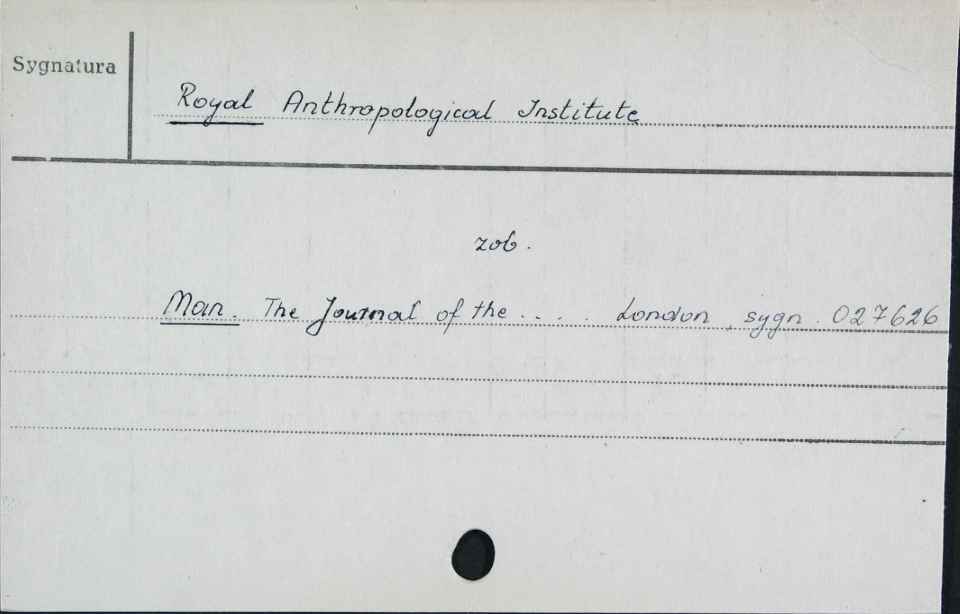 Sygnatura
Royal Anthropological Institute
zob.
Man. The Journal of the ... London, sygn. 027626